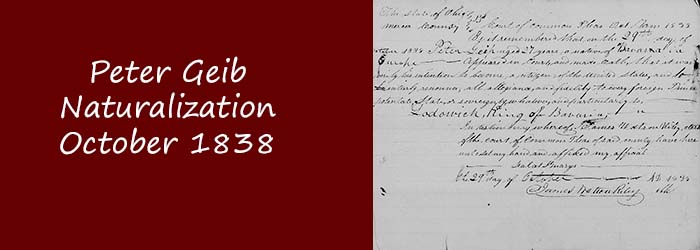 Peter Geib
Naturalization
October 1838
The State of Ohio
Mercer County } SS Court of Common Pleas Oct Term 1838
Be it remembered that on the 29th day of
October 1838 Peter Geib aged 27 years a native of Bavaria in
Europe Appeared in Court, and made Oath, that it was
his intention to become a citizen of the United States, and to
renounce, all allegiance and fidelity to every foreign Prince
potentate, State, or sovereignty whatever, and particularly to
Lodowick King of Bavaria
In testimony whereof, I James Watson Riley, clerk
of the court of Common Pleas of said county have here
unto set my hand and affixed my official
Seal at St Marys
the 29th day of October AD 1838
James Watson Riley Clk